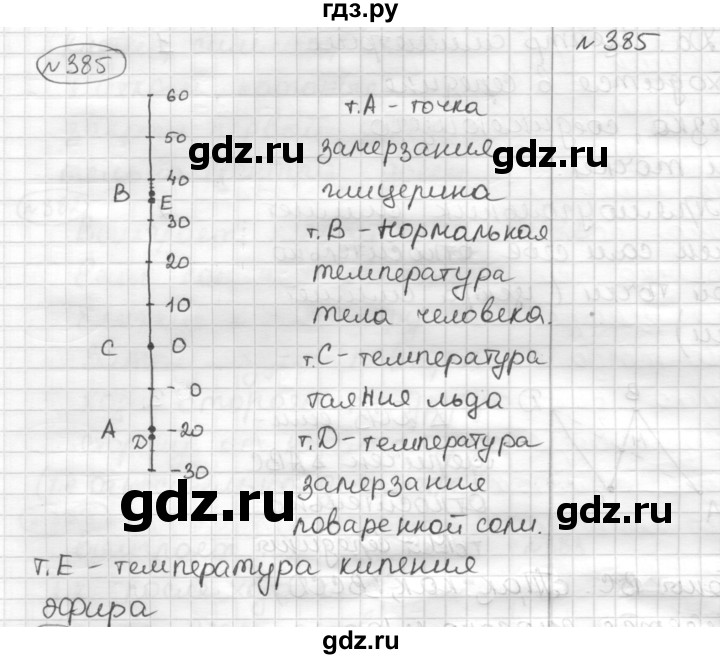 гдз.ру
№385
№385
60
50
40
B
E
30
20
10
C
0
- 0
A
-20
D
-30
т.А - точка
замерзания
глицерина
т.В - нормальная
температура
тела человека.
т.С - температура
таяния льда
т.D - температура
замерзания
поваренной соли.
т.Е - температура кипения
эфира
gdz.ru
gdz.ru
gdz.ru
gdz.ru
gdz.ru